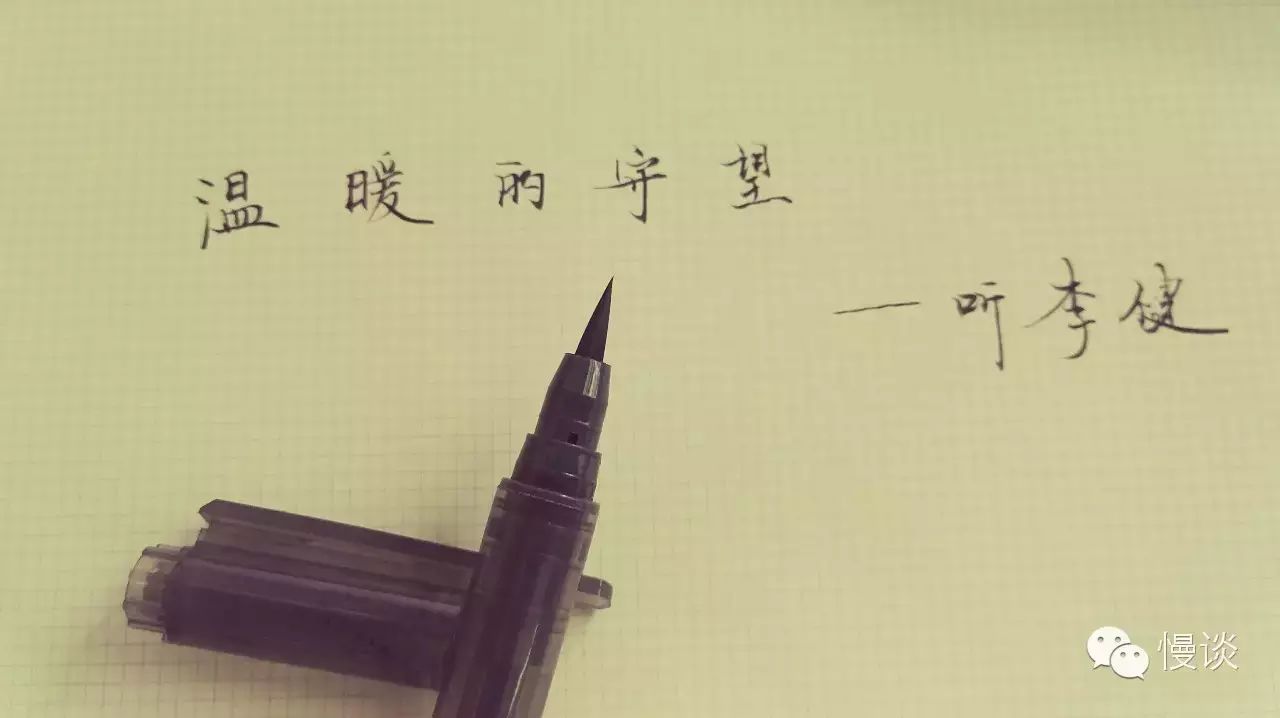 温暖的守望
—听李健
慢谈